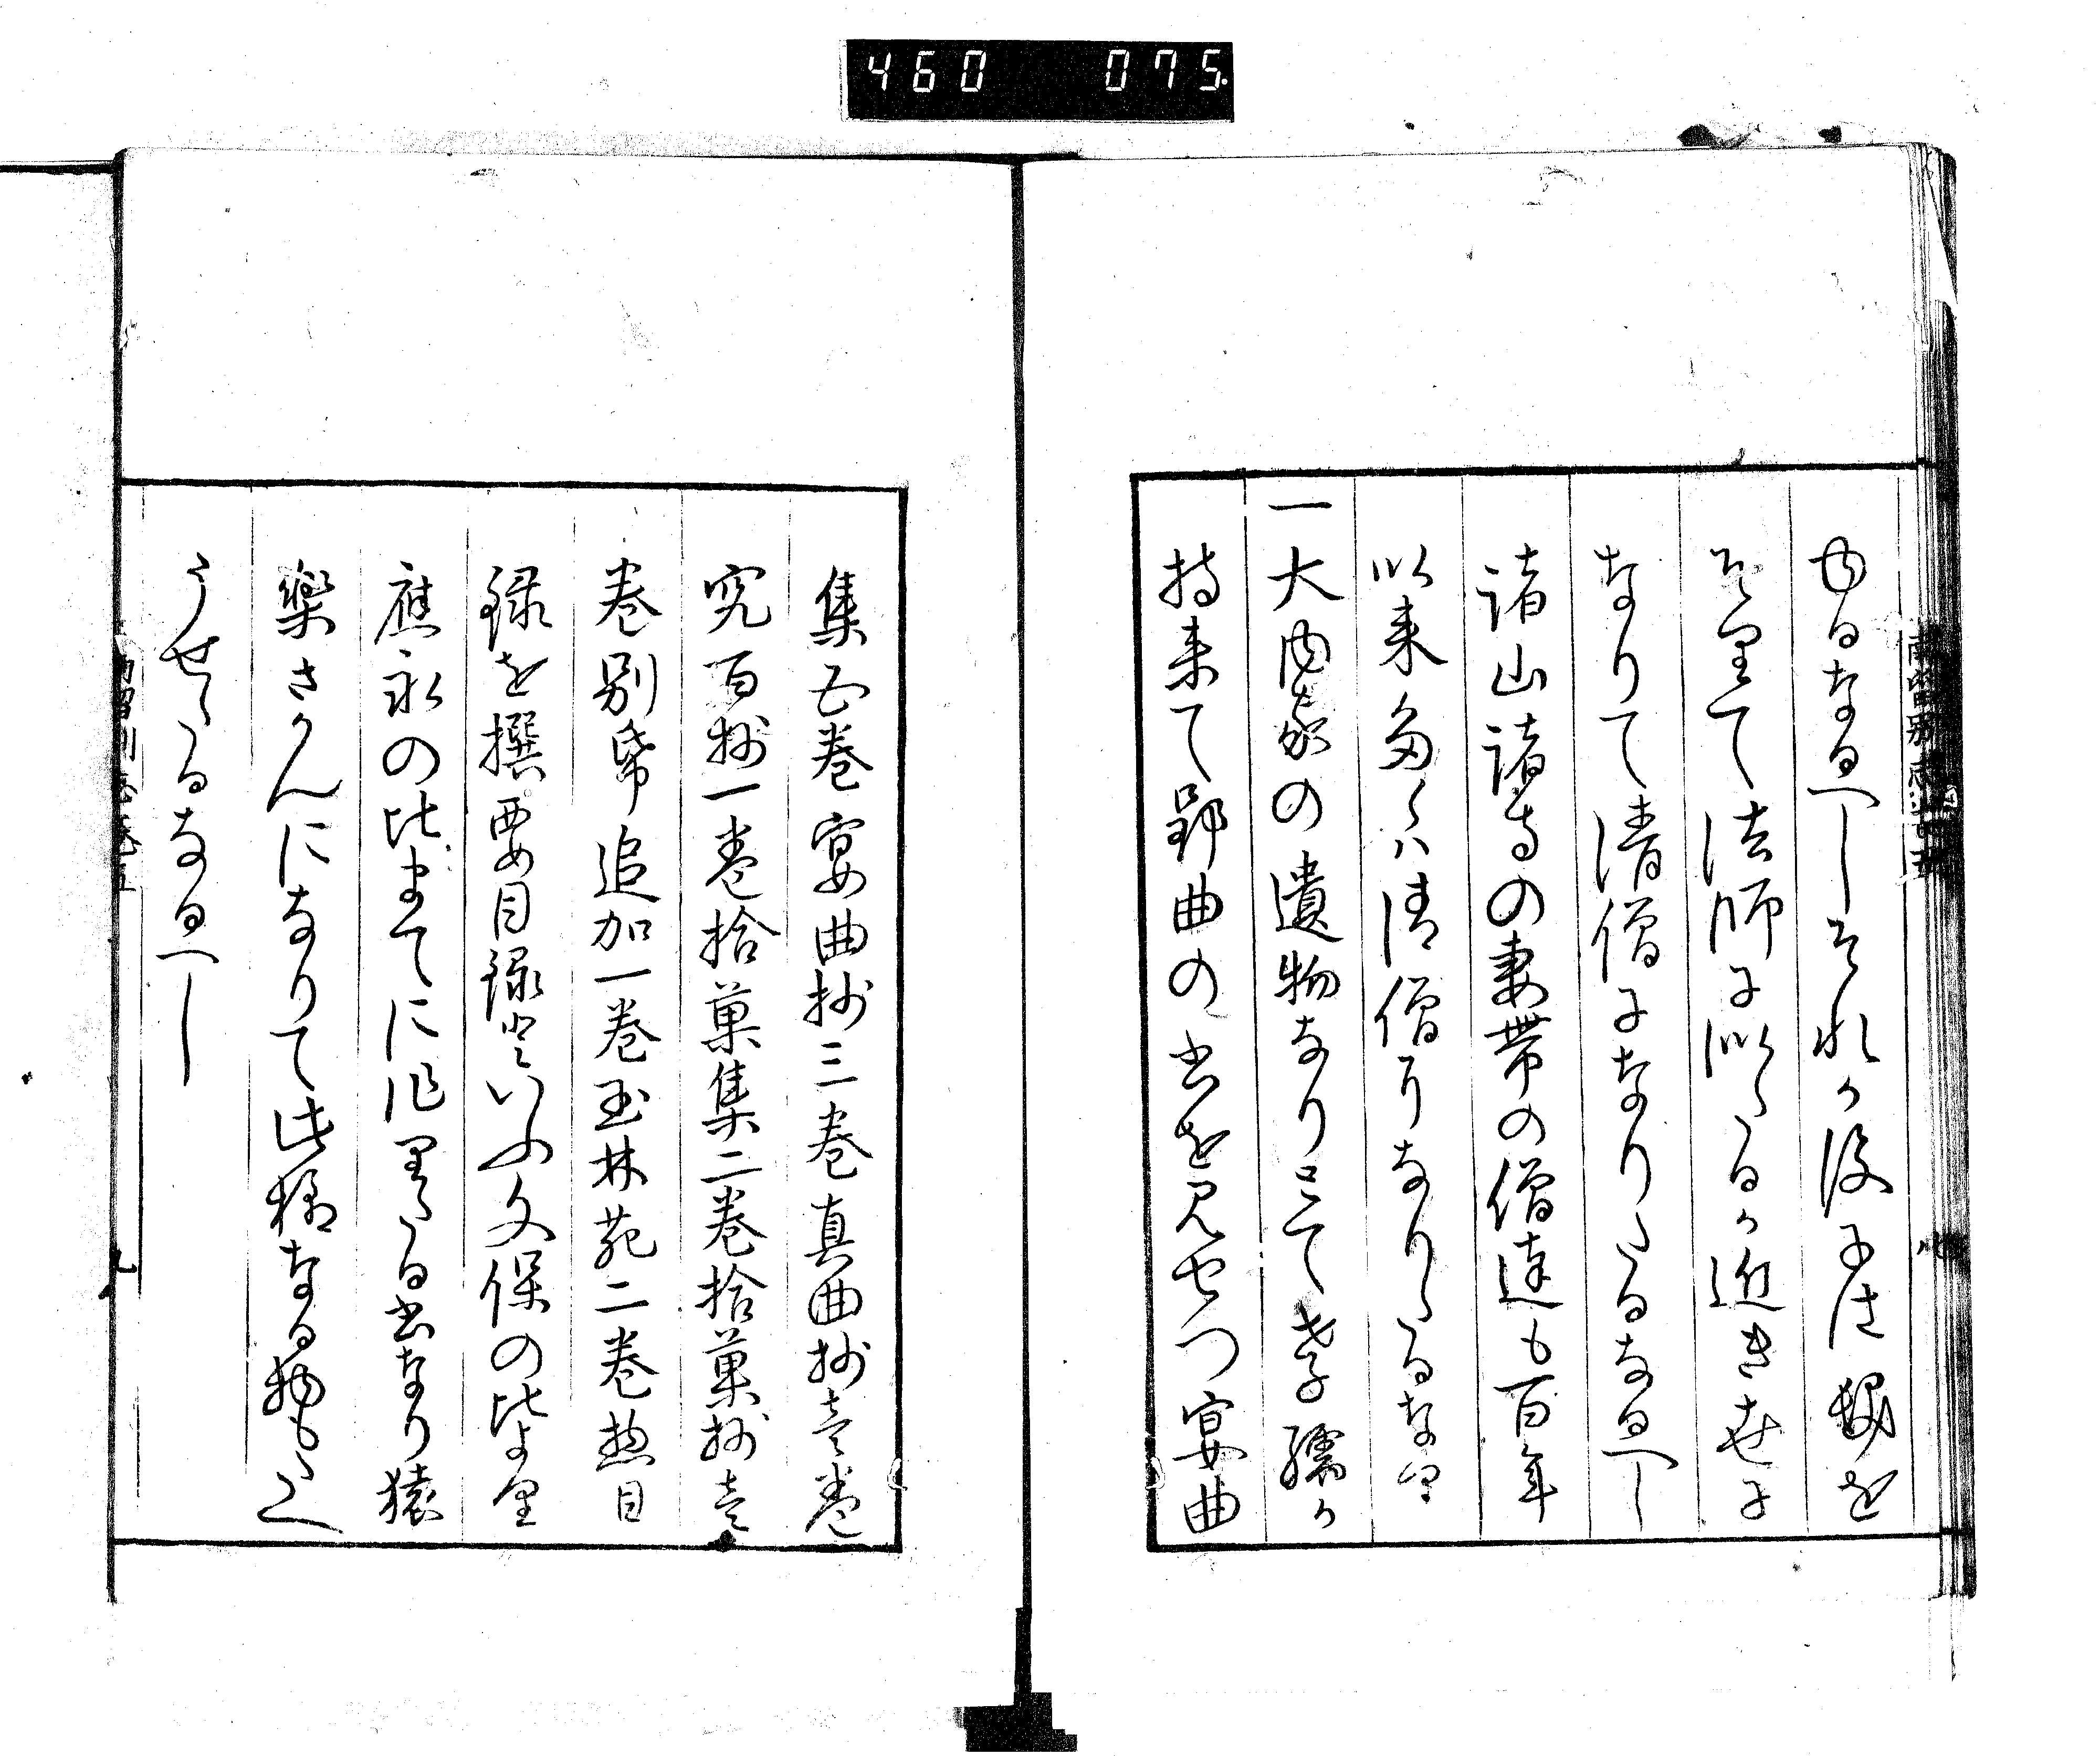 460 075
ゆるなるへしそれか後には髪を
そりて法師に似たるか近き世に
なりて清僧になりたるなるへし
諸山諸寺の妻帯の僧達も百年
以来多くハ清僧になりたるなり
一大内家の遺物なりとて孝孺か
持来て郢曲の書を見せつ宴曲
集五巻宴曲抄三巻真曲抄壱巻
究百抄一巻拾菓集二巻拾菓抄壱
巻別帋追加一巻玉林苑二巻惣目
録を撰要目録といふ文保の比より
應永の比まてに作りたる書なり猿
楽さかんになりて此様なる物もたへ
うせたるなるへし